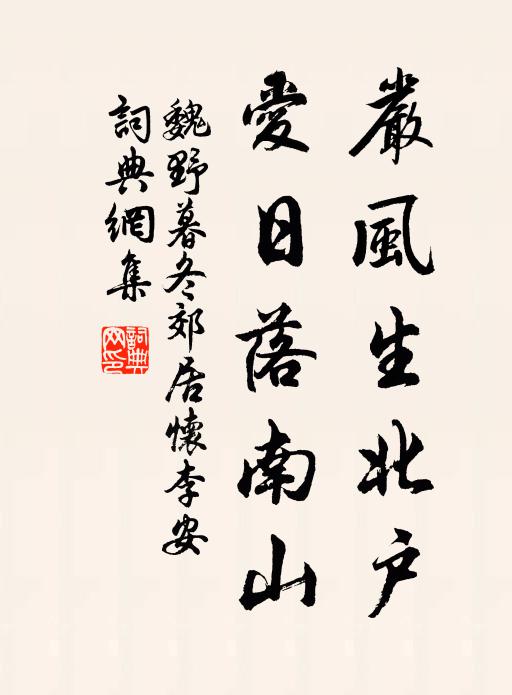 嚴風生北戶
愛日落南山
魏野暮冬郊居懷李安
詞典網集
詞典網印